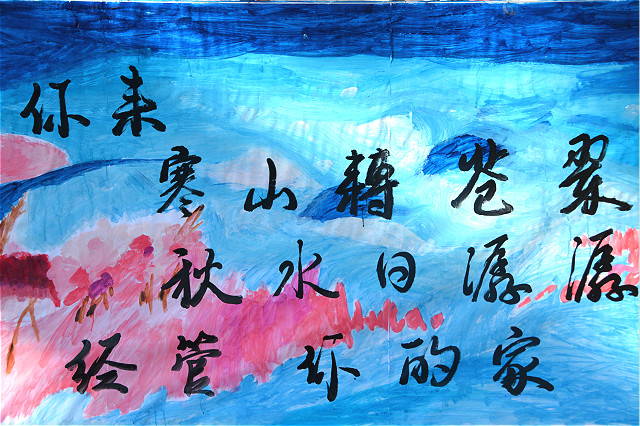 你来
寒山轉苍翠
秋水日潺潺
经管你的家